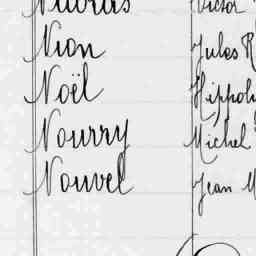 Victor
Nion Jules R
Noël Hippoly
Nourry Michel
Nouvel Jean M